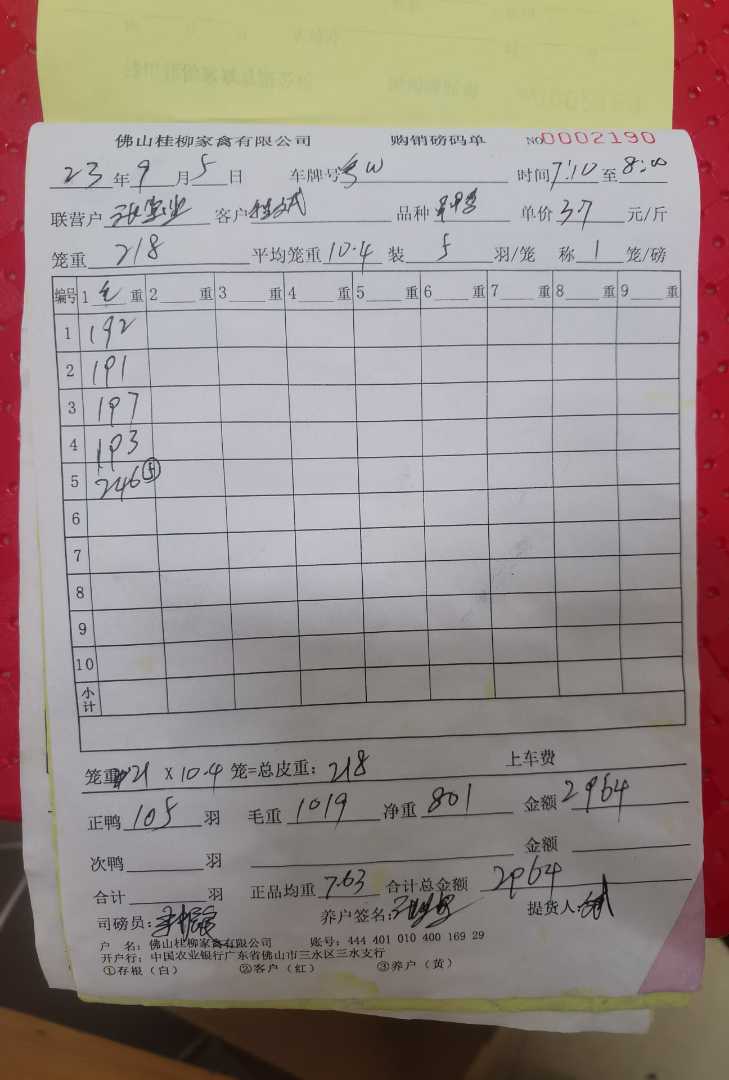 佛山桂柳家禽有限公司 购销磅码单 NO0002190
23年9月5日 车牌号 时间7:10至8:00
联营户 客户 品种 单价3.7元/斤
笼重218 平均笼重10.4 装5羽/笼 称1笼/磅
编号 1毛重 2重 3重 4重 5重 6重 7重 8重 9重
1 192
2 191
3 197
4 193
5 246 5
6
7
8
9
10
小计
笼重21 X 10.4 笼=总皮重:218 上车费
正鸭105羽 毛重1019 净重801 金额2964
次鸭羽 金额
合计羽 正品均重7.63 合计总金额2964
司磅员: 养户签名: 提货人:
户 名:佛山桂柳家禽有限公司 账号:444 401 010 400 169 29
开户行:中国农业银行广东省佛山市三水区三水支行
①存根(白) ②客户(红) ③养户(黄)